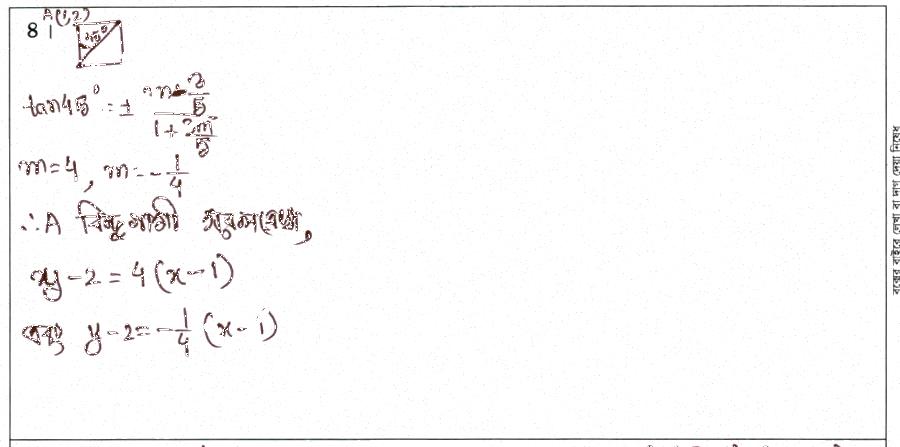 A(1,2)
8।
45°
tan45° = ± m - 3/5 / 1 + 3m/5
m=4, m= -1/4
∴A বিন্দুগামী সরলরেখা,
y-2 = 4(x-1)
এবং y-2 = -1/4 (x-1)
বক্সের বাইরে লেখা বা দাগ দেয়া নিষেধ